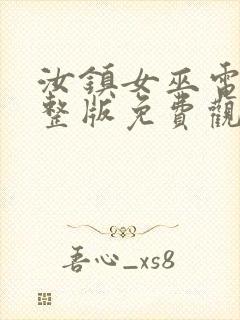 汝鎮女巫電
整版免費觀
吾心_xs8